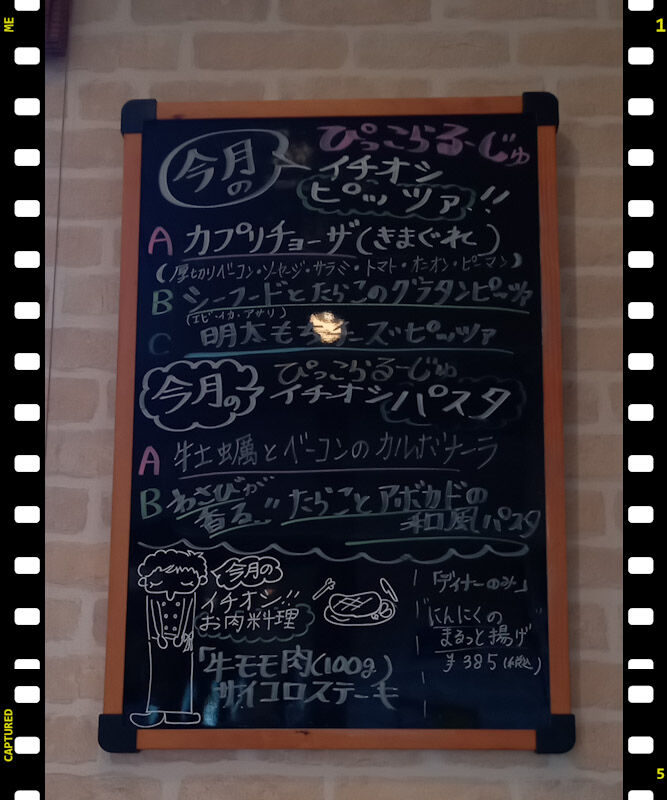 ME
1
今月の
ぴっこらるーじゅ
イチオシ
ピッツァ!!
A カプリチョーザ(きまぐれ)
(厚切りベーコン・ソーセージ・サラミ・トマト・オニオン・ピーマン)
B シーフードとたらこのグラタンピッツァ
(エビ・イカ・アサリ)
C 明太もちチーズピッツァ
今月の
ぴっこらるーじゅ
イチオシ パスタ
A 牡蠣とベーコンのカルボナーラ
B わさびが香る" たらことアボカドの
和風パスタ
今月の
イチオシ!!
お肉料理
「牛モモ肉(100g)
サイコロステーキ
「ディナーのみ」
にんにくの
まるっと揚げ
¥385(税込)
CAPTURED
5